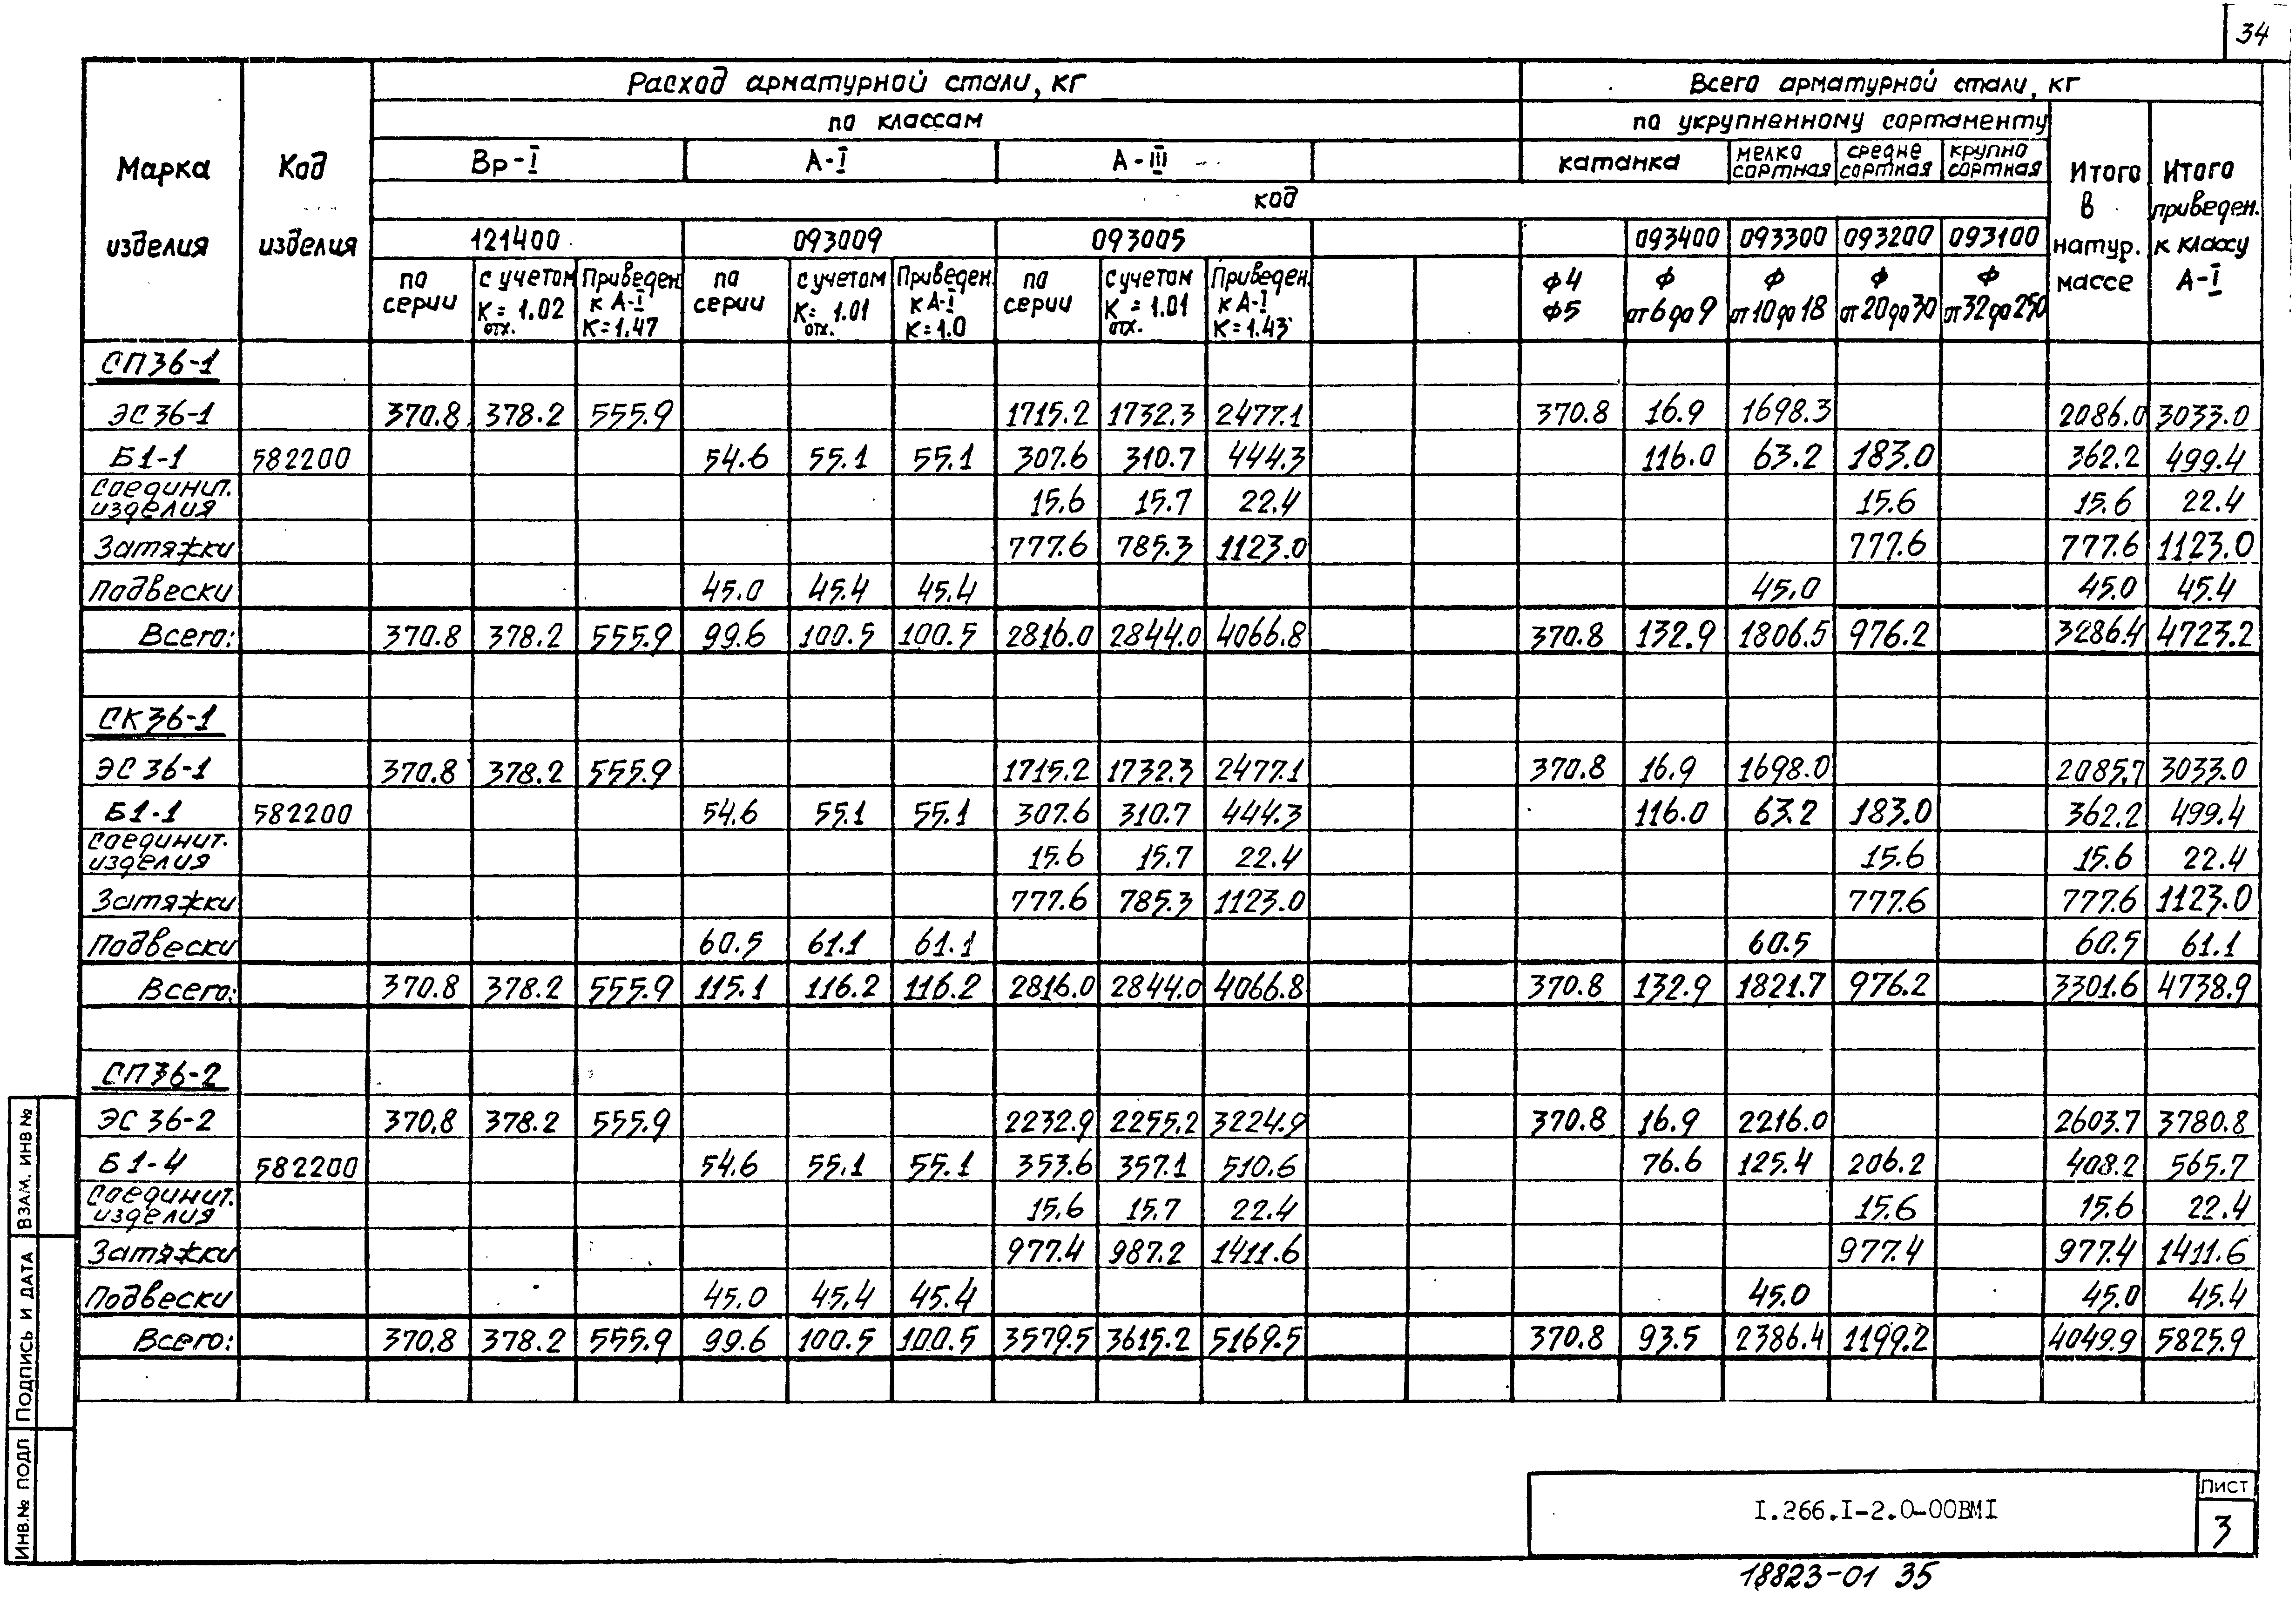 34
Расход арматурной стали, кг Всего арматурной стали, кг
по классам по укрупненному сортаменту
Марка изделия Код изделия Вр-I А-I А-III катанка мелко сортная средне сортная крупно сортная Итого в натур. массе Итого приведен. к классу А-I
код
121400 093009 093005 093400 093300 093200 093100
по серии с учетом Kотх.=1.02 Приведен. к А-I К=1.47 по серии с учетом Kотх.=1.01 Приведен. к А-I К=1.0 по серии с учетом Kотх.=1.01 Приведен. к А-I К=1.43 ф4 ф5 ф от 6 до 9 ф от 10 до 18 ф от 20 до 30 ф от 32 до 250
СП36-1
ЭС36-1 370.8 378.2 555.9 1715.2 1732.3 2477.1 370.8 16.9 1698.3 2086.0 3033.0
Б1-1 582200 54.6 55.1 55.1 307.6 310.7 444.3 116.0 63.2 183.0 362.2 499.4
Соединит. изделия 15.6 15.7 22.4 15.6 15.6 22.4
Затяжки 777.6 785.3 1123.0 777.6 777.6 1123.0
Подвески 45.0 45.4 45.4 45.0 45.0 45.4
Всего: 370.8 378.2 555.9 99.6 100.5 100.5 2816.0 2844.0 4066.8 370.8 132.9 1806.5 976.2 3286.4 4723.2
СК36-1
ЭС36-1 370.8 378.2 555.9 1715.2 1732.3 2477.1 370.8 16.9 1698.0 2085.7 3033.0
Б1-1 582200 54.6 55.1 55.1 307.6 310.7 444.3 116.0 63.2 183.0 362.2 499.4
Соединит. изделия 15.6 15.7 22.4 15.6 15.6 22.4
Затяжки 777.6 785.3 1123.0 777.6 777.6 1123.0
Подвески 60.5 61.1 61.1 60.5 60.5 61.1
Всего: 370.8 378.2 555.9 115.1 116.2 116.2 2816.0 2844.0 4066.8 370.8 132.9 1821.7 976.2 3301.6 4738.9
СП36-2
ЭС36-2 370.8 378.2 555.9 2232.9 2255.2 3224.9 370.8 16.9 2216.0 2603.7 3780.8
Б1-4 582200 54.6 55.1 55.1 353.6 357.1 510.6 76.6 125.4 206.2 408.2 565.7
Соединит. изделия 15.6 15.7 22.4 15.6 15.6 22.4
Затяжки 977.4 987.2 1411.6 977.4 977.4 1411.6
Подвески 45.0 45.4 45.4 45.0 45.0 45.4
Всего: 370.8 378.2 555.9 99.6 100.5 100.5 3579.5 3615.2 5169.5 370.8 93.5 2386.4 1199.2 4049.9 5825.9
ИНВ.№ ПОДЛ ПОДПИСЬ И ДАТА ВЗАМ. ИНВ №
I.266.I-2.0-00ВМI
Лист
3
18823-01 35